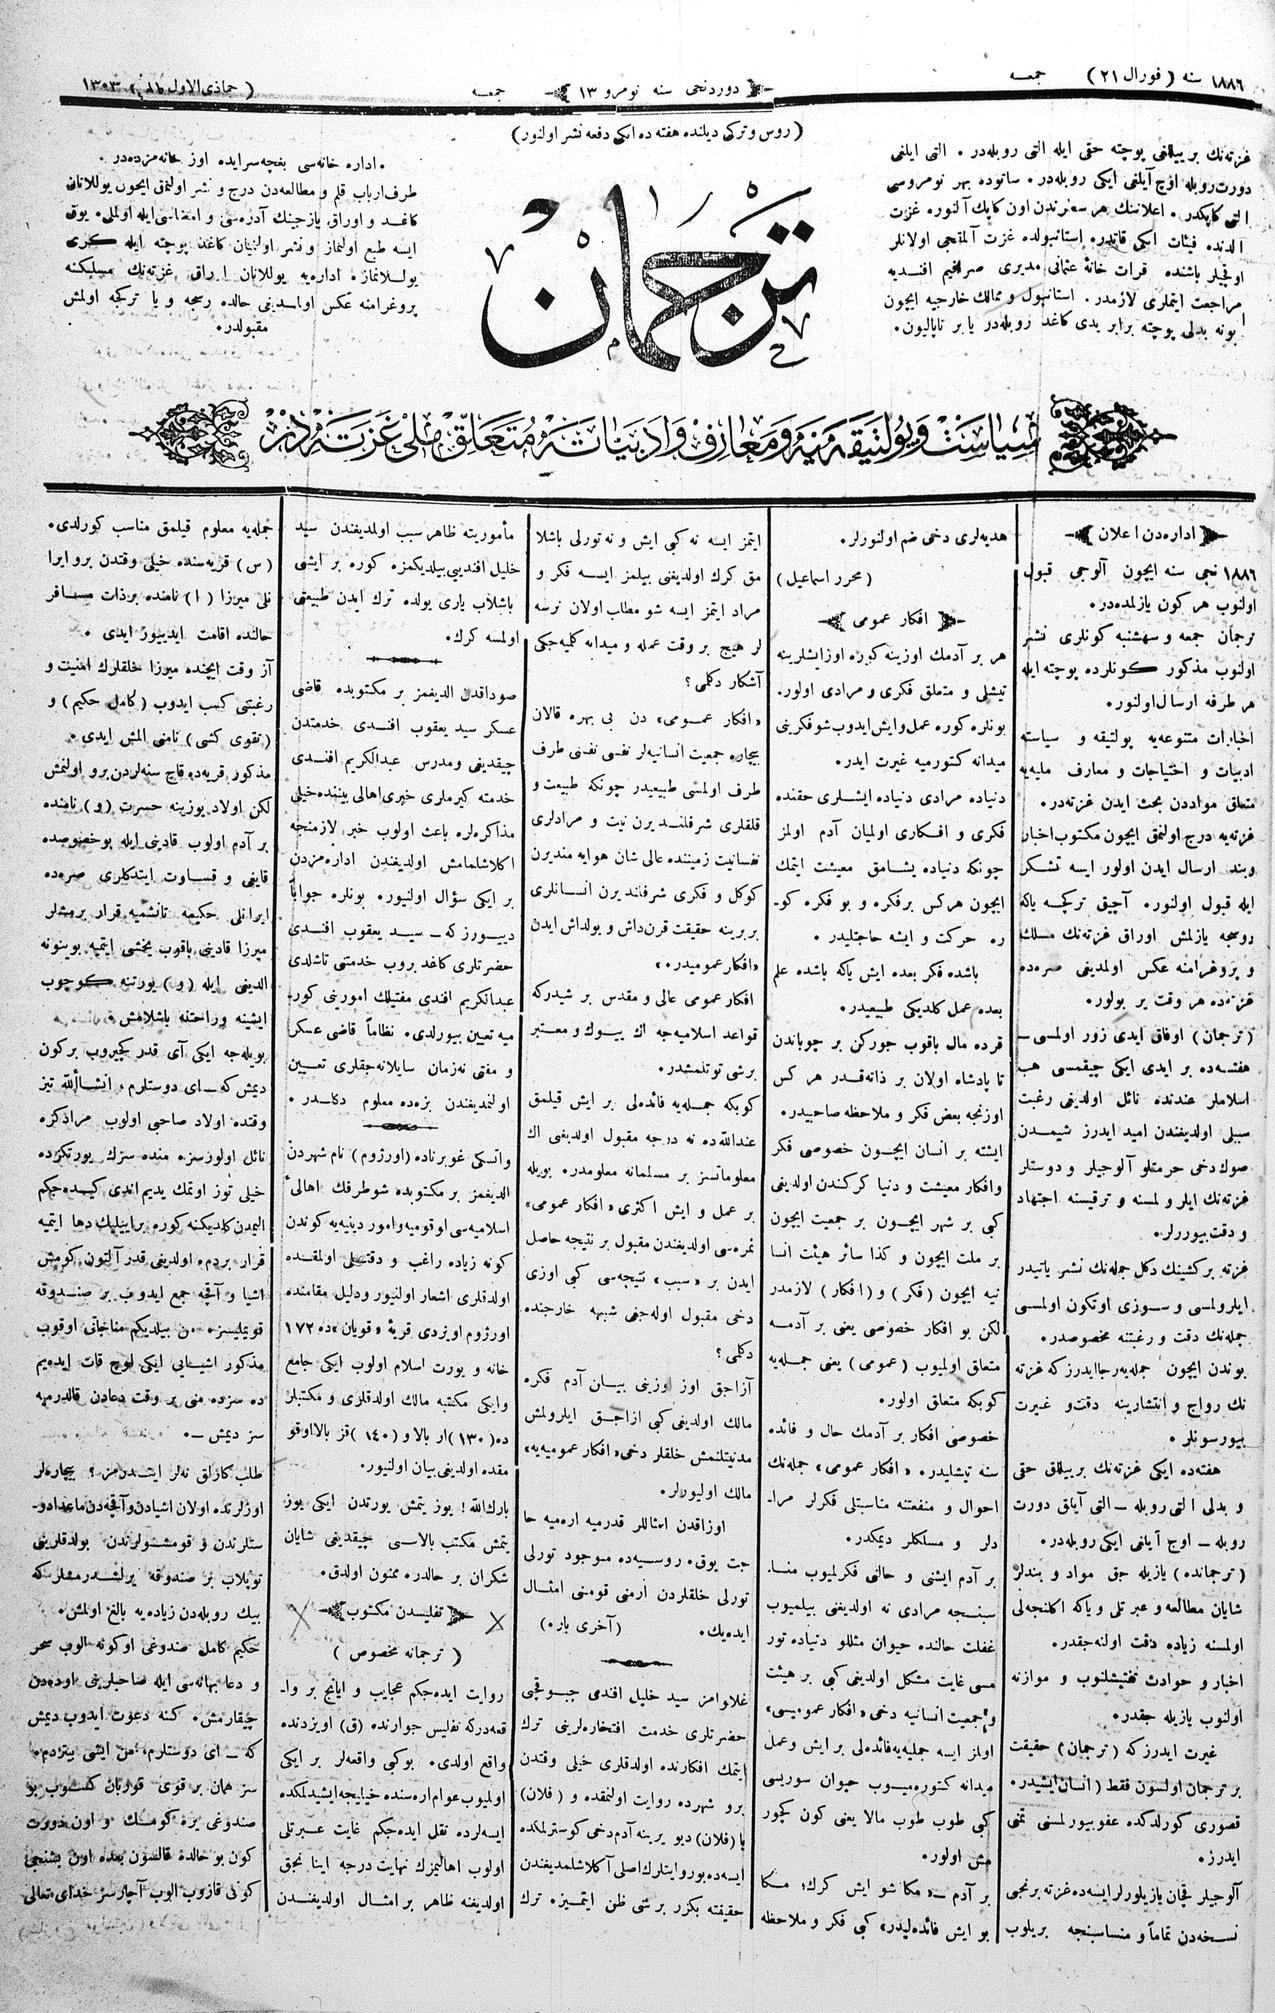 ١٨٨٦ سنه (فورال ٢١) جمعه
دوردنجی سنه نومرو ١٣
جمعه
(جماذی الاول ) ١٣٠٣
(روس و ترکی دیلنده هفته ده ایکی دفعه نشر اولنور)
غزته‌نك بر ییللغی پوچته حقی ایله التی روبله‌در. التی ایلغی
دورت روبله اوچ آیلغی ایکی روبله‌در. ساتوده بهر نومروسی
التی کاپکدر. اعلاننك هر سطرندن اون کاپك آلنور. غزت
آلدنده فیئات ایکی قاتدر. استانبولده غزت آلمقجی اولانلر
اوقچیلر باشنده قرات خانهٔ عثمانی مدیری صرافیم افندیه
مراجعت ایتملری لازمدر. استانبول و ممالك خارجیه ایچون
یونه بدلی پوچته برابر یدی کاغد روبله‌در یا بر ناپالیون.
ترجمان
اداره خانه‌سی بغچه‌سرایده اوز خانه‌مزده‌در.
طرف ارباب قلم و مطالعه‌دن درج و نشر اولنمق ایچون یوللانان
کاغد و اوراق یازجینك آدرسی و امضاسی ایله اولملی. یوق
ایسه طبع اولنماز و نشر اولنیان کاغد پوچته ایله کری
یوللانماز. اداره‌یه یوللانان اوراق غزته‌نك مسلکنه
پروغرامنه عکس اولمدیغی حالده رسجه و یا ترکجه اولمش
مقبولدر.
سیاست و پولتیقه مدنیه و معارف و ادبیاته متعلق ملی غزته‌در
اداره‌دن اعلان
١٨٨٦ نجی سنه ایچون آلوجی قبول
اولنوب هر کون یازلمده‌در.
ترجمان جمعه و سه‌شنبه کونلری نشر
اولنوب مذکور کونلرده پوچته ایله
هر طرفه ارسال اولنور.
اخبارات متنوعه‌یه پولتیقه و سیاسته
ادبیات و احتیاجات و معارف ملیه‌یه
متعلق موادن بحث ایدن غزته‌در.
غزته‌یه درج اولنمق ایچون مکتوب اخبار
وبند ارسال ایدن اولور ایسه تشکر
ایله قبول اولنور. آچیق ترکجه یاکه
روسجه یازلمش اوراق غزته‌نك مسلك
و پروغرامنه عکس اولمدیغی صره‌ده
غزته‌ده هر وقت یر بولور.
(ترجمان) اوفاق ایدی زور اولمسی ـ
هفته‌ده بر ایدی ایکی چیقمسی هب
اسلاملر عندنده نائل اولدیغی رغبت
سببلی اولدیغندن امید ایدرز شیمدن
صوك دخی حرمتلو آلوجیلر و دوستلر
غزته‌نك ایلرولمسنه و ترقیسنه اجتهاد
و دقت بیوررلر.
غزته برکشینك دکل جمله‌نك نشر یاتیدر
ایلرولمسی و سوزی اوتکون اولمسی
جمله‌نك دقت و رغبتنه مخصوصدر.
بوندن ایچون جمله‌یه رجا ایدرزکه غزته
نك رواج و انتشارینه دقت و غیرت
بیورسونلر.
هفته‌ده ایکی غزته‌نك بر ییللق حقی
و بدلی التی روبله ـ التی آیلق دورت
روبله ـ اوج آیلغی ایکی روبله‌در.
(ترجمانده) یازیله جق مواد و بندلر
شایان مطالعه و عبرتلی و یاکه اکلنجه‌لی
اولمسنه زیاده دقت اولنه‌جقدر.
اخبار و حوادث تفتیشلنوب و موازنه
اولنوب یازیله جقدر.
غیرت ایدرزکه (ترجمان) حقیقت
بر ترجمان اولسون فقط (انسان ایشیدر.
قصوری کورلدکده عفو بیورلمسنی تمنی
ایدرز.
آلوجیلر قچان یازیلورلر ایسه‌ده غزته برنجی
نسخه‌دن تماماً و مناسبنجه بریلوب
هدیه‌لری دخی ضم اولنورلر.
(محرر اسماعیل)
افکار عمومی
هر بر آدمك اوزینه کوره اوزایشلرینه
تیشلی و متعلق فکری و مرادی اولور.
بونلره کوره عمل و ایش ایدوب شو فکرینی
میدانه کتورمیه غیرت ایدر.
دنیاده مرادی دنیاده ایشلری حقنده
فکری و افکاری اولمیان آدم اولمز
چونکه دنیاده یشامق معیشت ایتمك
ایچون هرکس بر فکره و بو فکره کو‍ـ
ره حرکت و ایشه حاجتلیدر.
باشده فکر بعده ایش یاکه باشده علم
بعده عمل کلدیکی طبیعیدر.
قرده مال باقوب جورکن بر چوباندن
تا پادشاه اولان بر ذاته‌قدر هر کس
اوزنجه بعض فکر و ملاحظه صاحبیدر.
ایشته بر انسان ایچون خصوصی فکر
وافکار معیشت و دنیا کرکندن اولدیغی
کبی بر شهر ایچون بر جمعیت ایچون
بر ملت ایچون و کذا سائر هیئت انسا
نیه ایچون (فکر) و (افکار) لازمدر
لکن بو افکار خصوصی یعنی بر آدمه
متعلق اولمیوب (عمومی) یعنی جمله‌یه
کوبکه متعلق اولور.
خصوصی افکار بر آدمك حال و فائده
سنه تیشلیدر. «افکار عمومی» جمله‌نك
احوال و منفعتنه مناسبتلی فکرلر مرا‍ـ
دلر و مسلکلر دیمکدر.
بر آدم ایشنی و حالنی فکرلمیوب منا‍ـ
سبنجه مرادی نه اولدیغنی بیلمیوب
غفلت حالنده حیوان مثللو دنیاده تور
مسی غایت مشکل اولدیغی کبی بر هیئت
و جمعیت انسانیه دخی «افکار عمومیسی»
اولمز ایسه جملیه‌یه فائده‌لی بر ایش و عمل
میدانه کتوره‌میوب حیوان سوریسی
کبی طوب طوب مالا یعنی کون کچور
مش اولور.
بر آدم ـ «مکا شو ایش کرك، مکا
بو ایش فائده‌لیدر» کبی فکر و ملاحظه
ایتمز ایسه نه کبی ایش و نه تورلی باشلا
مق کرك اولدیغنی بیلمز ایسه فکر و
مراد ایتمز ایسه شو مطلب اولان نرسه
لر هیچ بر وقت عمله و میدانه کلمیه‌جکی
آشکار دکلمی؟
«افکار عمومی» دن بی بهره قالان
بیچاره جمعیت انسانیه‌لر نفسی نفسی طرف
طرف اولمسی طبیعیدر چونکه طبیعت و
قلقلری شرفلندیرن نیت و مرادلری
نفسانیت زمیننده عالی شان هوایه مندیرن
کوکل و فکری شرفلندیرن انسانلری
بر برینه حقیقت قرنداش و یولداش ایدن
«افکار عمومیدر.»
افکار عمومی عالی و مقدس بر شیدرکه
قواعد اسلامیه‌جه اك بیوك و معتبر
برشی توتلمشدر.
کوبکه جمله‌یه فائده‌لی بر ایش قیلمق
عندالله‌ده نه درجه مقبول اولدیغی اك
معلوماتسز بر مسلمانه معلومدر. بویله
بر عمل و ایش اکثری «افکار عمومی»
ثمره‌سی اولدیغندن مقبول بر نتیجه حاصل
ایدن بر «سبب» نتیجه‌سی کبی اوزی
دخی مقبول اوله‌جغی شبهه خارجنده
دکلمی؟
آزاجق اوز اوزینی بیان آدم فکره
مالك اولدیغی کبی ازاجق ایلرولمش
مدنیتلنمش خلقلر دخی «افکار عمومیه‌یه»
مالك اولیورلر.
اوزاقدن امثاللر قدرمیه اره‌میه حا
جت یوق. روسیه‌ده موجود تورلی
تورلی خلقلردن ارمنی قومنی امثال
ایده‌یك. (آخری بار.)
غلاوامز سید خلیل افندی جبوقچی
حضرتلری خدمت افتخاره‌لرینی ترك
ایتمك افکارنده اولدقلری خیلی وقتدن
برو شهرده روایت اولنمقده و (فلان)
یا (فلان) دیو یرینه آدم دخی کوسترلمکده
ایسه‌ده بو روایتلرك اصلی آکلاشلمدیغندن
حقیقته بکزر بر شی ظن ایتمیز. ترك
مأموریته ظاهر سبب اولمدیغندن سید
خلیل افندیی بیلدیکمزه کوره بر ایشی
باشلاب یاری یولده ترك ایدن طبیعتلی
اولمسه کرك.
صوداقدن الدیغمز بر مکتوبده قاضی
عسکر سید یعقوب افندی خدمتدن
چیقدیغی و مدرس عبدالکریم افندی
خدمته کیرملری خبری اهالی بیننده خیلی
مذاکره‌لره باعث اولوب خبر لازمنجه
اکلاشلمامش اولدیغندن اداره‌مزدن
بر ایکی سؤال اولنیور. بونلره جواباً
دییورزکه ـ سید یعقوب افندی
حضرتلری کاغد بروب خدمتنی تاشلدی
عبدالکریم افندی مفتیلك امورینی کور‍ـ
میه تعیین بیورلدی. نظاماً قاضی عسکر
و مفتی نه‌زمان سایلانه‌جقلری تعیین
اولنمدیغندن بزه‌ده معلوم دکلدر.
واتسکی غوبرناده (اورژوم) نام شهردن
الدیغمز بر مکتوبده شو طرفك اهالیٔ
اسلامیه‌سی اوقومیه و امور دینیه‌یه کوندن
کونه زیاده راغب و دقتلی اولمقده
اولدقلری اشعار اولنیور و دلیل مقامنده
اورژوم اویزدی قریهٔ «قویان» ده ١٧٢
خانه و یورت اسلام اولوب ایکی جامع
وایکی مکتبه مالك اولدقلری و مکتبلر
ده (١٣٠) ار بالا و (١٤٠) قز بالا اوقو
مقده اولدیغی بیان اولنیور.
بارك الله! یوز یتمش یورتدن ایکی یوز
یتمش مکتب بالاسی چیقدیغی شایان
شکران بر حالدر. ممنون اولدق.
تفلیسدن مکتوب
(ترجمانه مخصوص)
روایت ایده‌جکم عجایب و ایانج بر وا‍ـ
قعه‌درکه تفلیس جوارنده (ق) اویزدنده
واقع اولدی. بوکبی واقعه‌لر بر ایکی
اولمیوب عوام اره‌سنده خیلیجه ایشیدلمکده
ایسه‌لرده نقل ایده‌جکم غایت عبرتلی
اولوب اهالیمزك نهایت درجه اینانجق
اولدیغنه ظاهر بر امثال اولدیغندن
جمله‌یه معلوم قیلمق مناسب کورلدی.
(س) قریه‌سنده خیلی وقتدن برو ایرا
نلی میرزا (ا) نامنده بر ذات مسافر
حالنده اقامت ایدییور ایدی.
آز وقت ایچنده میرزا خلقلرك امنیت و
رغبتنی کسب ایدوب (کامل حکیم) و
(تقوی کشی) نامنی المش ایدی.
مذکور قریه‌ده قاچ سنه‌لردن برو اولنمش
لکن اولاد یوزینه حسرت (و) نامنده
بر آدم اولوب قادینی ایله بو خصوصده
قایغی و قساوت ایتدکلری صره‌ده
ایرانلی حکیمه تانشمیه قرار برمشلر
میرزا قادینی باقوب یخشی ایتمیه بوینونه
الدیغی ایله (و) یورتنه کوچوب
ایشینه و راحتنه باشلامش.
بویله‌جه ایکی آی قدر کچیروب بر کون
دیمش که ـ ای دوستلرم، انشاألله تیز
وقتده اولاد صاحبی اولوب مرادکزه
نائل اولورسز. منده سزك یورتکزده
خیلی توز اوتمك یدیم اندی کیده‌جکم
الیمدن کلدیکنه کوره بر ایلیك دها ایتمیه
قرار بردم. اولدیغی قدر آلتون کومش
اشیا و آقچه جمع ایدوب بر صندوقه
قویملیسز. من بیلدیکم مناجاتی اوقوب
مذکور اشیایی ایکی اوچ قات ایده‌یم
ده سزده منی بر وقت دعادن قالدرمیه
سز دیمش ـ.
طلب کازلق نه‌لر ایتدرمز؟ بیچاره‌لر
اوزلرنده اولان اشیادن و آقچه‌دن ماعدا دو‍ـ
ستلرندن و قومشولرندن بولدقلرینی
توپلاب بر صندوقه یرلشدرمشلر که
بیك روبله‌دن زیاده‌یه بالغ اولمش.
حکیم کامل صندوغی اوکونه الوب سحر
و دعا بهانه‌سی ایله صاحبلرینی اوده‌دن
چیقارمش. کنه دعوت ایدوب دیمش
که ـ ای دوستلرم، من ایشی بیتردم.
سز همان بر قوی قوربان کسوب بو
صندوغی یره کومك و اون دورت
کون بو حالده قالسون بعده اون بشنجی
کونی قازوب الوب آچارسز خدای تعالی